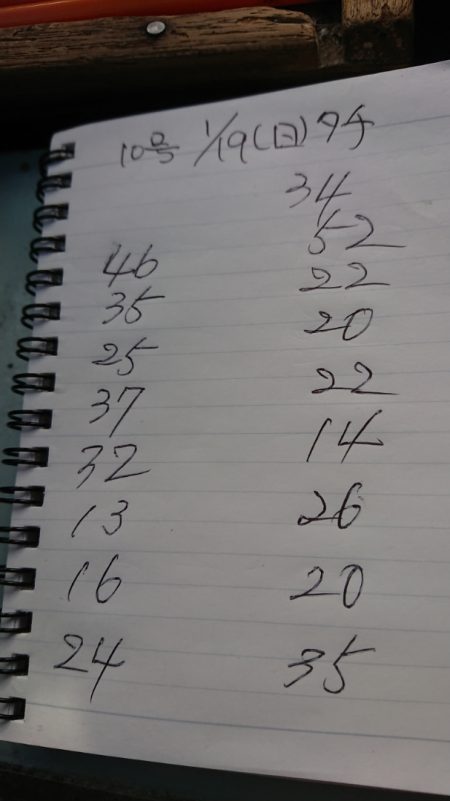 10号 1/19(日)ワチ
34
52
46 22
35 20
25 22
37 14
32 26
13 20
16 35
24